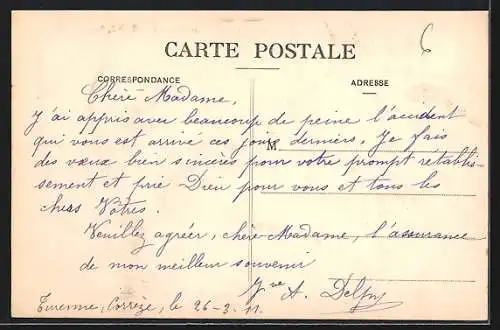 CARTE POSTALE
CORRESPONDANCE
ADRESSE
Chère Madame,
J'ai appris avec beaucoup de peine l'accident
qui vous est arrivé ces jours derniers. Je fais
M
des vœux bien sincères pour votre prompt rétablis-
sement et prie Dieu pour vous et tous les
chers Vôtres.
Veuillez agréer, chère Madame, l'assurance
de mon meilleur souvenir
Vve A. Delfry
Turenne, Corrèze, le 26-3-11.
6